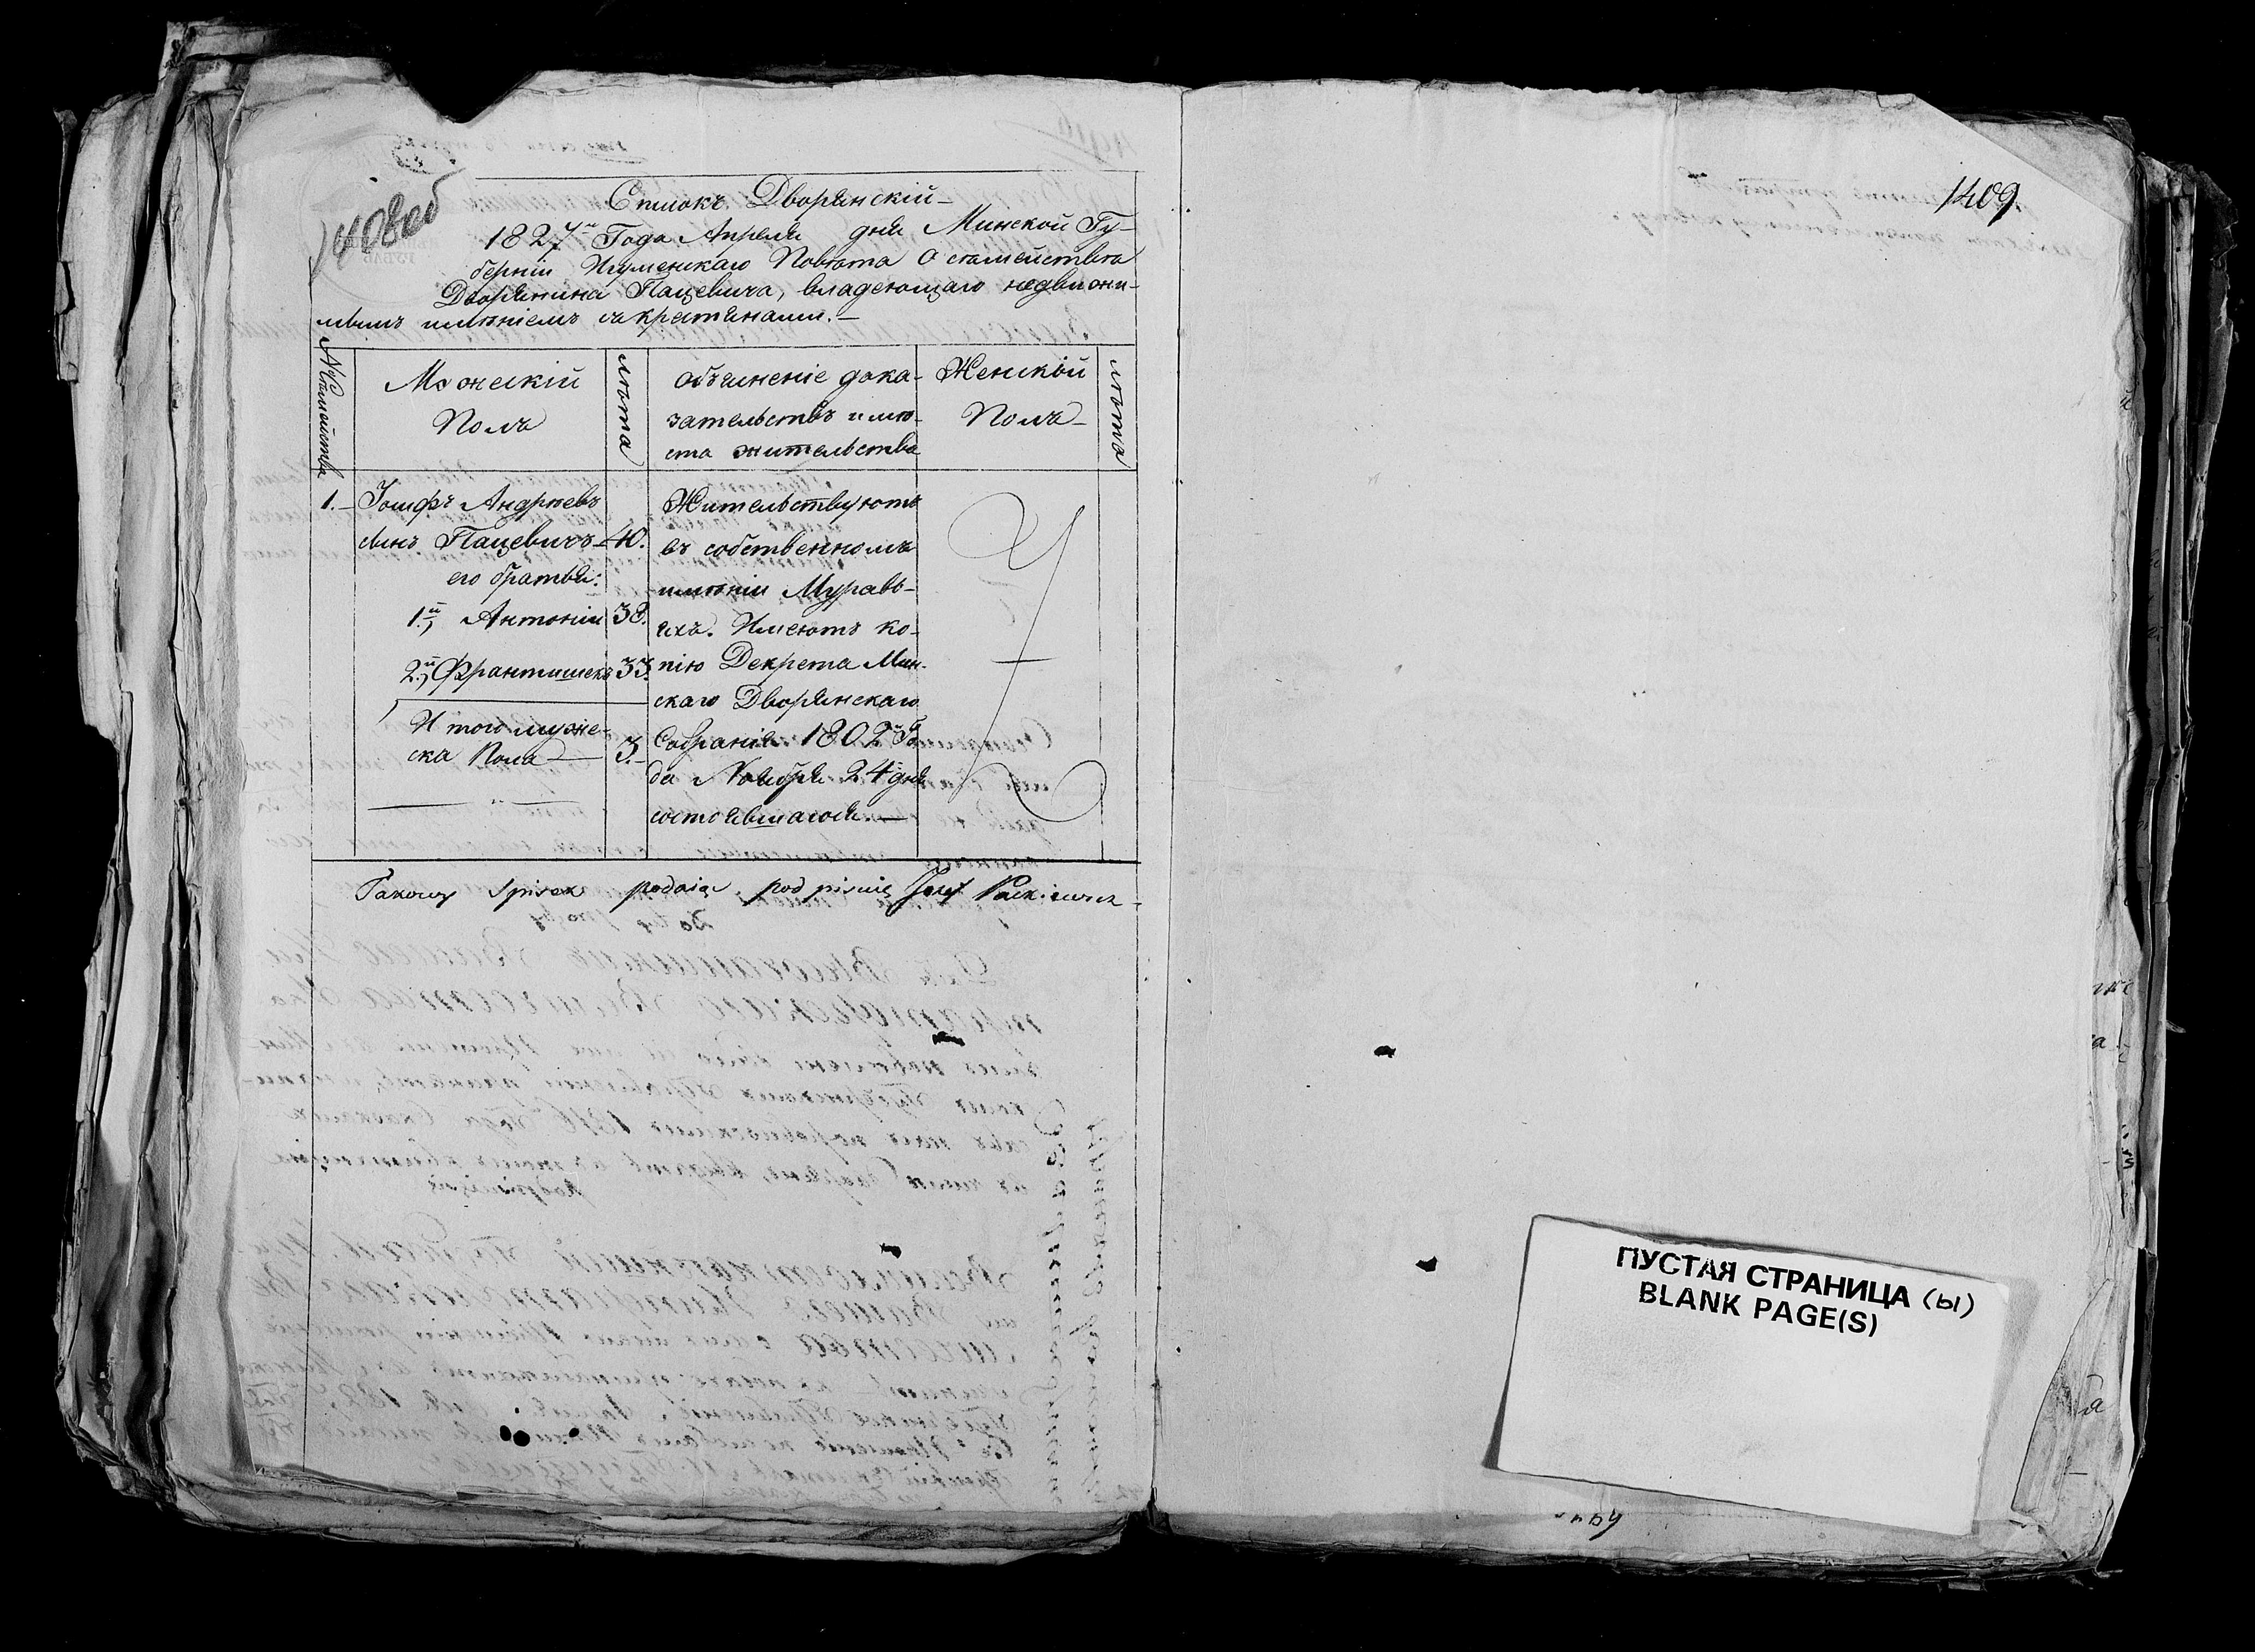 1408об
Списокъ Дворянскій
1827го Года Апреля дня Минской Гу-
берніи Игуменскаго Повѣта О семействѣ
Дворянина Пацевича, владеющаго недвижи-
мымъ имѣніемъ съ крестьянами.
№ Семейства
Мужескій
Полъ
лѣта
Объясненіе дока-
зательствъ и мѣ-
ста жительства
Женскій
Полъ
лѣта
1. Іосифъ Андрѣевъ
сынъ Пацевичъ 40.
его братья:
1й, Антоній 38.
2й, Францишекъ 33.
Итого муже-
ска Пола 3.
Жительствуютъ
въ собственномъ
имѣніи Муравь-
яхъ. Имеютъ ко-
пію Декрета Мин-
скаго Дворянскаго
Собранія 1802 Го-
да Ноября 24 дня
состоявшагося.
Takowy Spisek podaią podpisuię Jozef Packiewicz
1409
ПУСТАЯ СТРАНИЦА (Ы)
BLANK PAGE(S)